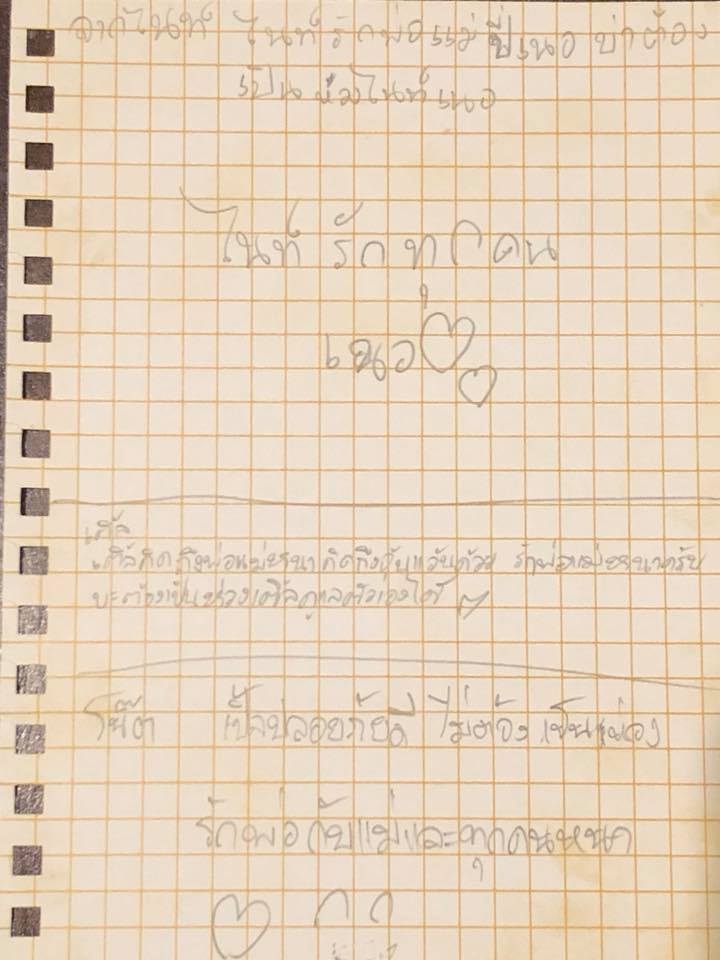 จากไนท์ ไนท์รักพ่อแม่ปี่เนอ บ่าต้อง
เป็นห่วงไนท์เนอ
ไนท์ รัก ทุกคน
เนอ
เติ้ล
เติ้ลคิดถึงพ่อแม่ คิดถึง ด้วย รักพ่อแม่
บะต้องเป็นห่วงเติ้ลดูแลตัวเองได้
โน๊ต ปลอยภัยดี ไม่ต้องเป็นห่วง
รักพ่อกับแม่และทุกคนหนา